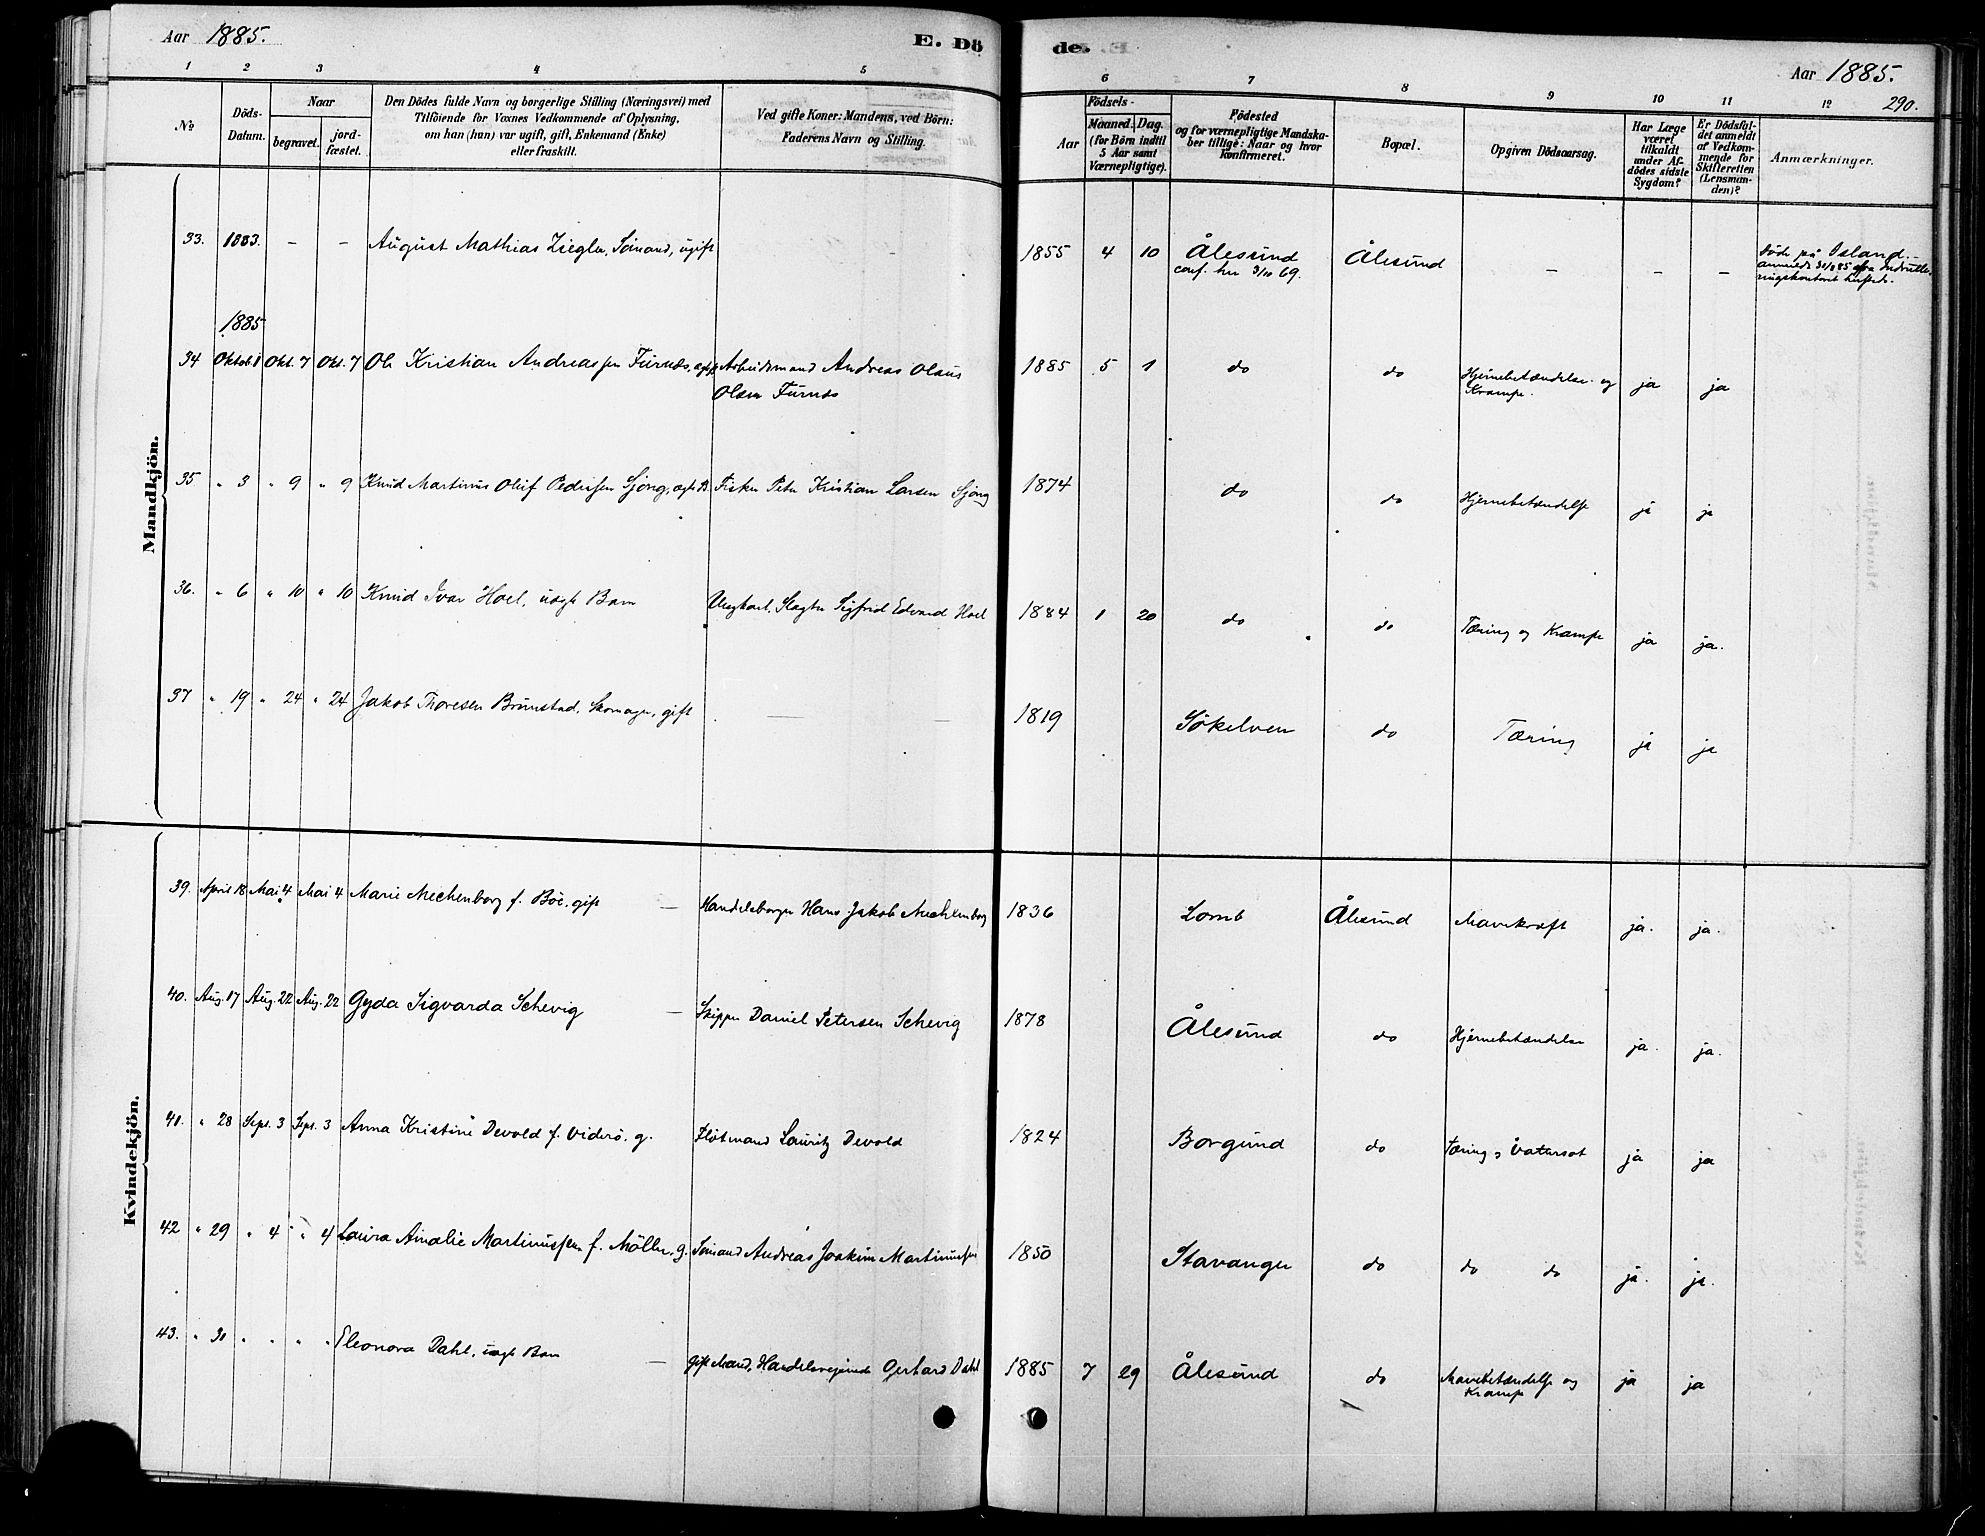 Aar 1885.
E. Dö
de.
Aar 1885.
290.
1 2 3 4 5 6 7 8 9 10 11 12
No
Döds-
Datum.
Naar
begravet.
jord-
fæstet.
Den Dödes fulde Navn og borgerlige Stilling (Næringsvei) med
Tilföiende for Voxnes Vedkommende af Oplysning,
om han (hun) var ugift, gift, Enkemand (Enke)
eller fraskilt.
Ved gifte Koner: Mandens, ved Börn:
Faderens Navn og Stilling.
Födsels-
Aar
Maaned. Dag.
(for Börn indtil
5 Aar samt
Værnepligtige).
Födested
og for værnepligtige Mandska-
ber tillige: Naar og hvor
konfirmeret.
Bopæl.
Opgiven Dödsaarsag.
Har Læge
været
tilkaldt
under Af-
dödes sidste
Sygdom?
Er Dödsfal-
det anmeldt
af Vedkom-
mende for
Skifteretten
(Lensman-
den)?
Anmærkninger.
Mandkjön.
33. 1883. – – August Mathias Ziegler, Sömand, ugift 1855 4 10 Ålesund Ålesund – – – Död på Island.
conf. her 3/10 69.
1885
34 Oktob 1 Okt. 7 Okt. 7 Ole Kristian Andreassen Furnes, Arbeidsmand Andreas Olaus 1885 5 1 do do Hjernebetændelse og ja ja
Olsen Furnes
Krampe.
35 " 3 " 9 " 9 Knud Martinus Oluf Pedersen Sjong, ægte B. Fisker Peter Kristian Larsen Sjong 1874 do do Hjernebetændelse ja ja
36. " 6 " 10 " 10 Knud Ivar Hoel, uægte Barn Ungkarl, Slagter Sigfrid Edvard Hoel 1884 1 20 do do Tæring og Krampe ja ja.
37 " 19 " 24 " 24 Jakob Thoresen Brunstad, Skomager, gift – – 1819 Sökelven do Tæring ja ja
Kvindekjön.
39. April 18 Mai 4 Mai 4 Marie Mechenborg f. Böe. gift – Handelsborger Hans Jakob Mechlenborg 1836 Lomb Ålesund Mavekræft ja. ja.
40. Aug. 17 Aug. 22 Aug. 22 Gyda Sigvarda Schevig – Skipper Daniel Petersen Schevig 1878 Ålesund do Hjernebetændelse ja. ja.
41. " 28 Sept. 3 Sept. 3 Anna Kristine Devold f. Viderö. g. Flötmand Lauritz Devold 1824 Borgund do Tæring og Vatersot ja ja
42 " 29 " 4 " 4 Laura Amalie Martinussen f. Möller. g. Sömand Andreas Joakim Martinussen 1850 Stavanger do do do ja. ja.
43. " 30 " " " " Eleonora Dahl, uægte Barn – gift Mand, Gerhard Dahl 1885 7 29 Ålesund do Mavebetændelse og ja ja
Krampe